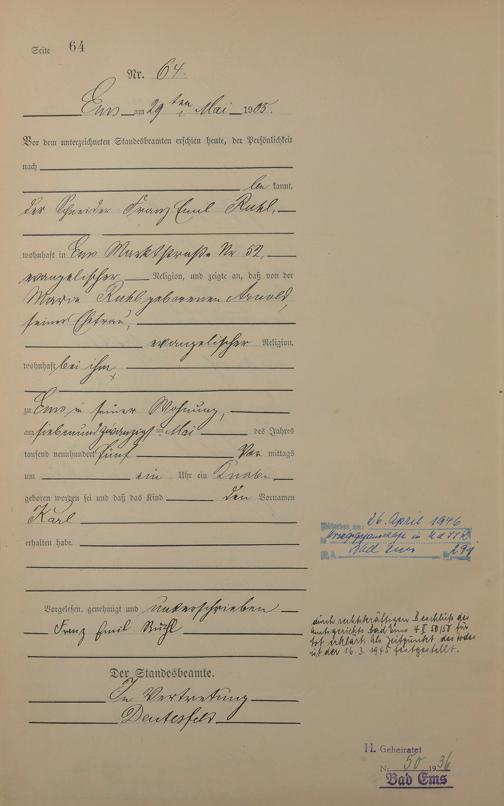 Seite 64
Nr. 64.
Ems am 29ten Mai 1905.
Vor dem unterzeichneten Standesbeamten erschien heute, der Persönlichkeit
nach
be kannt,
der Schneider Franz Emil Ruhl,
wohnhaft in Ems Marktstraße Nr 52,
evangelischer Religion, und zeigte an, daß von der
Marie Ruhl geborenen Arnold,
seiner Ehefrau,
evangelischer Religion,
wohnhaft bei ihm,
zu Ems in seiner Wohnung,
am siebenundzwanzigsten Mai des Jahres
tausend neunhundert fünf Vor mittags
um ein Uhr ein Knabe
geboren worden sei und daß das Kind den Vornamen
Karl
erhalten habe.
Vorgelesen, genehmigt und unterschrieben
Franz Emil Ruhl
Der Standesbeamte.
In Vertretung
26. April 1946
in
Bad Ems 291
durch rechtskräftigen Beschluß des
Amtsgerichts Bad Ems 4 II 50/58 für
tot erklärt. Als Zeitpunkt des Todes
ist der 16.3.1945 festgestellt.
H. Geheiratet
Nr. 50 1936
Bad Ems